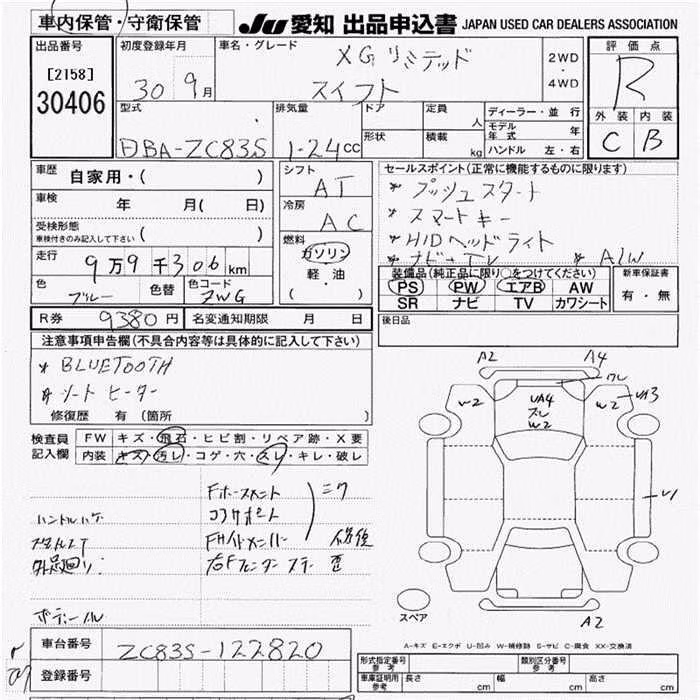 車内保管・守衛保管 JU 愛知 出品申込書 JAPAN USED CAR DEALERS ASSOCIATION
出品番号 [2158] 30406
初度登録年月 30 9月
車名・グレード XG リミテッド スイフト
2WD・4WD
評価点 R
外装 内装
C B
型式 DBA-ZC83S
排気量 1-24cc
ドア 形状
定員 人 積載 kg
ディーラー・並行
モデル年式 年
ハンドル 左・右
車歴 自家用・( )
車検 年 月( 日)
受検形態 車検付きのみ記入して下さい ( )
走行 9万9千306km
色 ブルー 色替 色コード ZWG
シフト AT
冷房 AC
燃料 ガソリン 軽・油 ( )
セールスポイント(正常に機能するものに限ります)
* プッシュスタート
* スマートキー
* HIDヘッドライト
* ナビ+TV * A/W
装備品(純正品に限り○をつけてください)
PS PW エアB AW
SR ナビ TV カワシート
新車保証書 有・無
後日品
R券 9380円 名変通知期限 月 日
注意事項申告欄(不具合内容等は具体的に記入して下さい)
* BLUETOOTH
* シートヒーター
修復歴 有(箇所 )
検査員記入欄
FW キズ・飛石・ヒビ割・リペア跡・X要
内装 キズ・汚レ・コゲ・穴・スレ・キレ・破レ
コアサポート
修後
歪
A2 A4
W2 UA4 スレ W2 W2 UA3
U1
A2
スペア
A-キズ E-エクボ U-凹み W-補修跡 S-サビ C-腐食 XX-交換済
車台番号 ZC83S-122820
登録番号
形式指定番号 参考 類別区分番号 参考
車庫証明用 参考 長さ cm 幅 cm 高さ cm